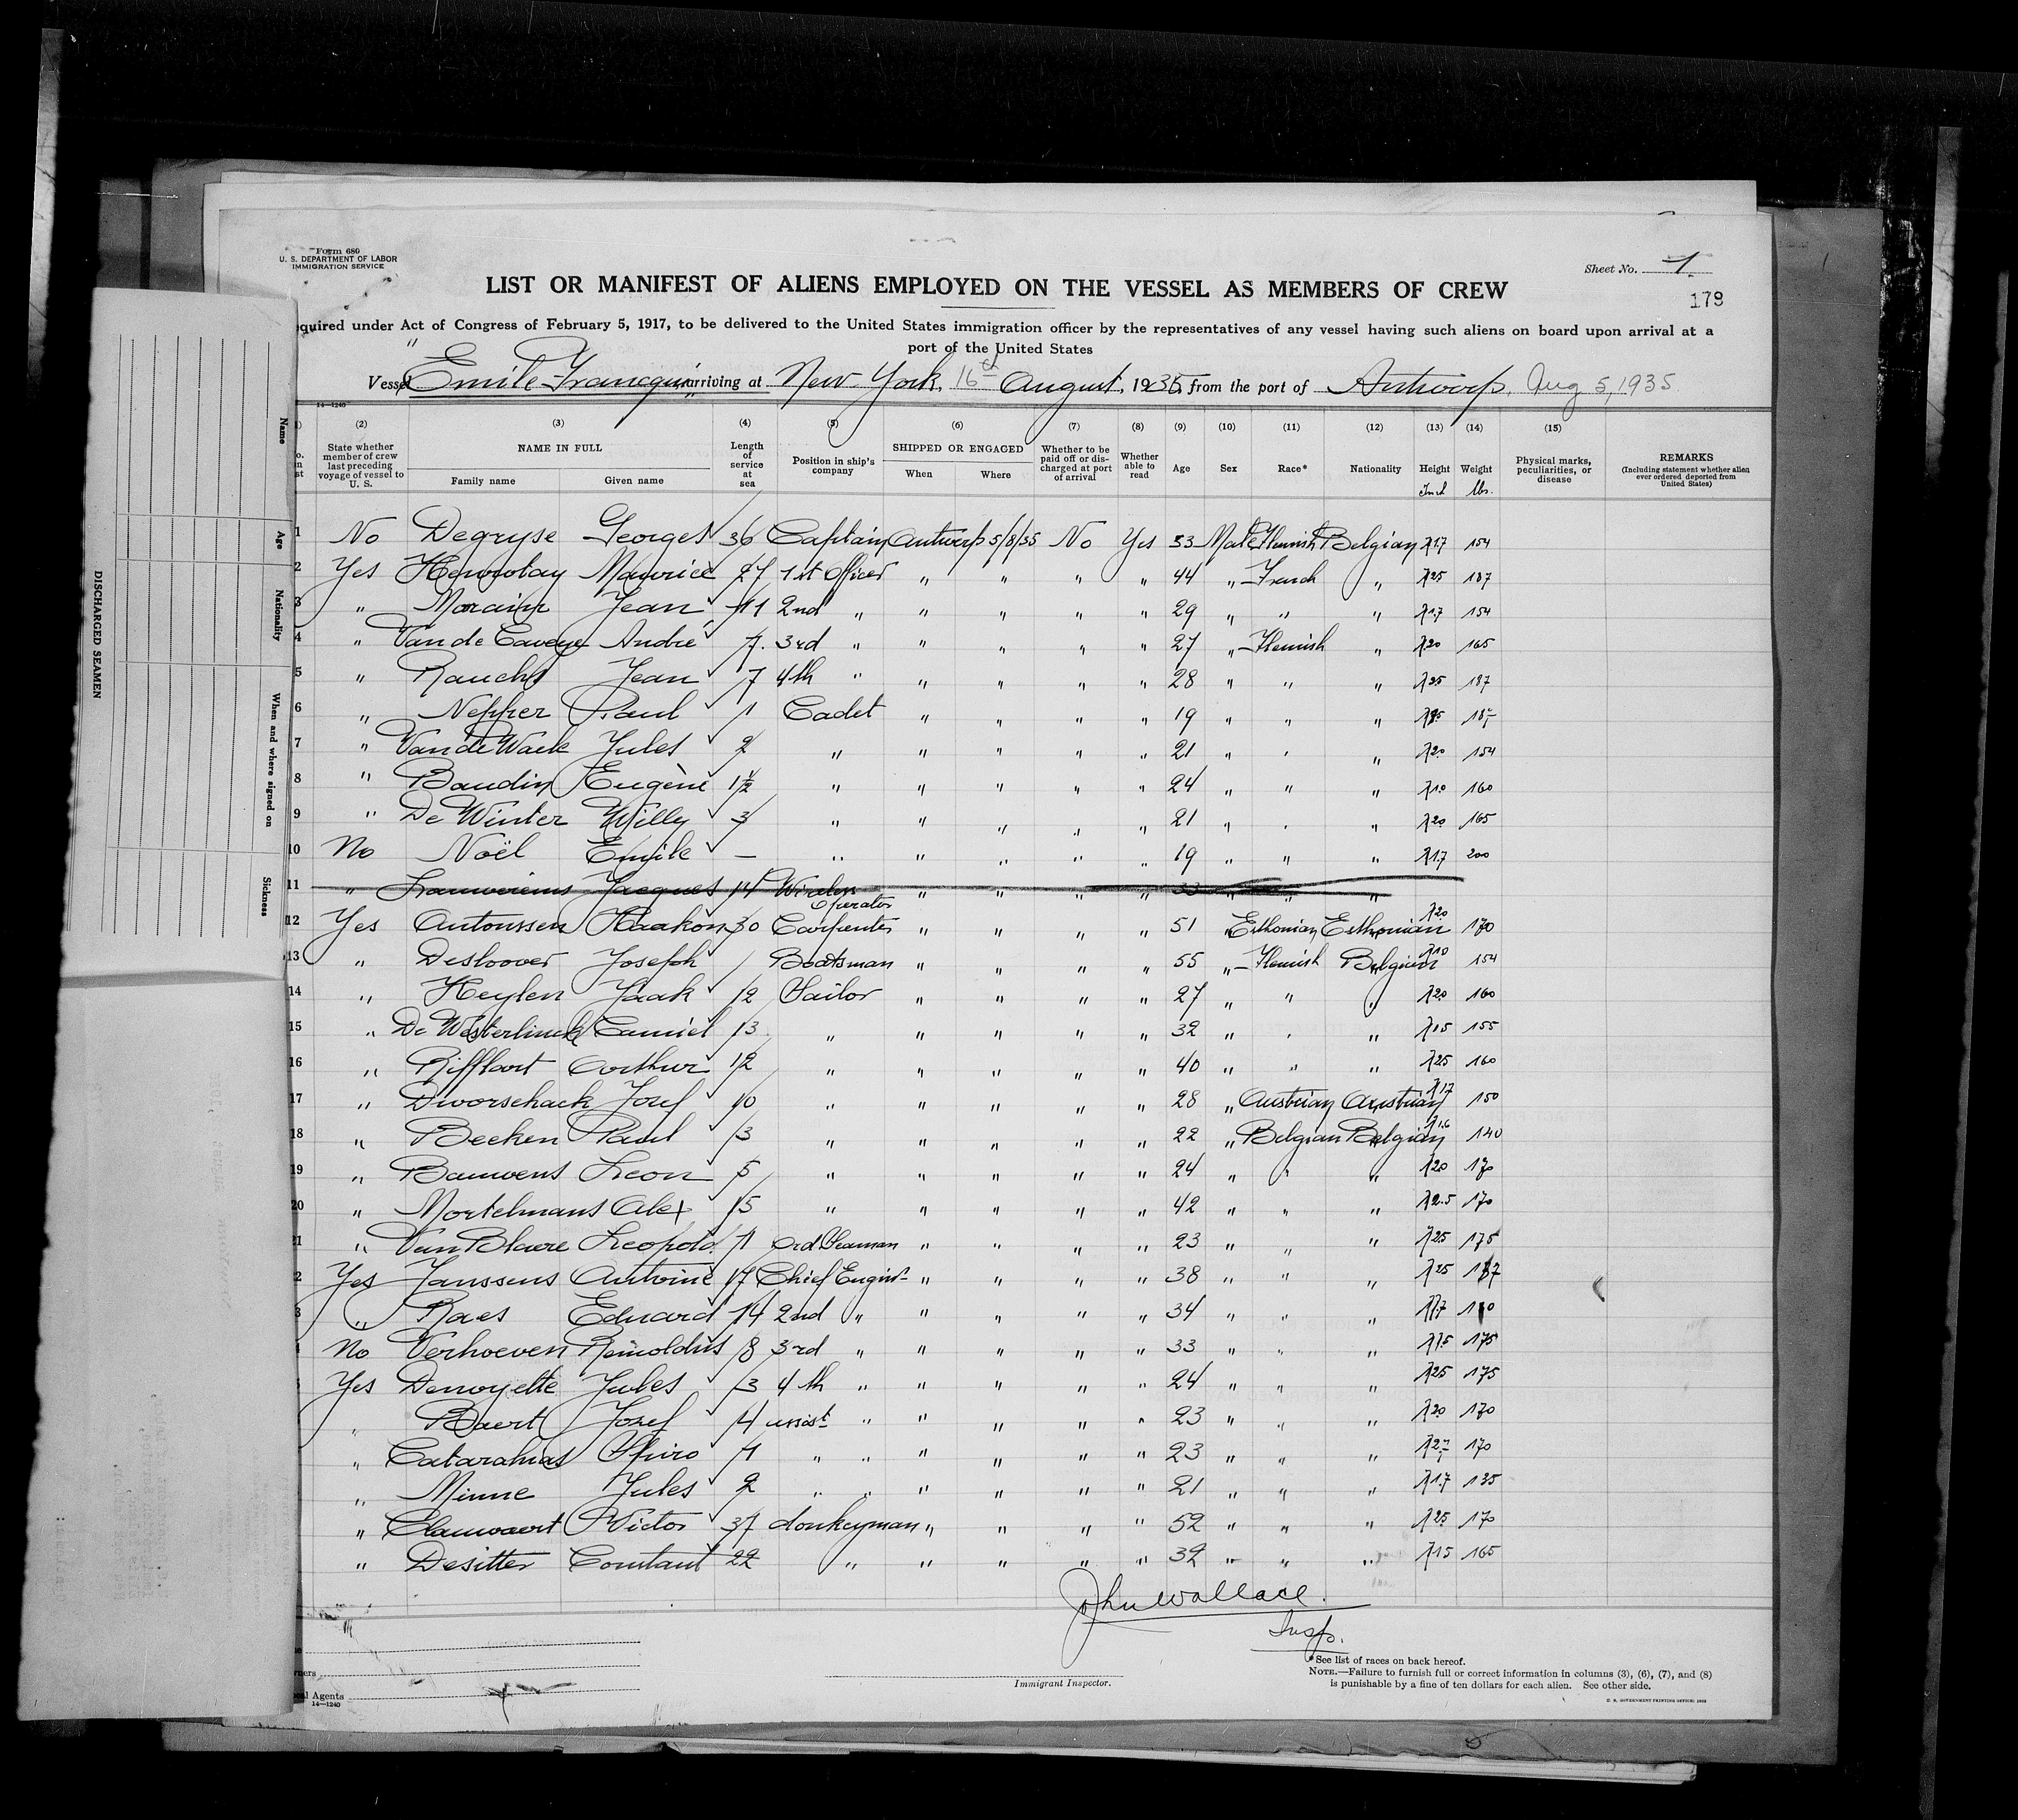 Form 680
U. S. DEPARTMENT OF LABOR
IMMIGRATION SERVICE
Sheet No. 1
LIST OR MANIFEST OF ALIENS EMPLOYED ON THE VESSEL AS MEMBERS OF CREW
179
quired under Act of Congress of February 5, 1917, to be delivered to the United States immigration officer by the representatives of any vessel having such aliens on board upon arrival at a
port of the United States
Vessel "Emile Francqui" arriving at New York, 16th August, 1935, from the port of Antwerp, Aug 5, 1935
14—1240
(2) (3) (4) (5) (6) (7) (8) (9) (10) (11) (12) (13) (14) (15)
State whether member of crew last preceding voyage of vessel to U. S.
NAME IN FULL
Family name Given name
Length of service at sea
Position in ship's company
SHIPPED OR ENGAGED
When Where
Whether to be paid off or discharged at port of arrival
Whether able to read
Age Sex Race* Nationality Height Weight lbs.
Physical marks, peculiarities, or disease
REMARKS
(Including statement whether alien ever ordered deported from United States)
1 No Degryse Georges 36 Captain Antwerp 5/8/35 No Yes 53 Male Flemish Belgian 154
2 Yes Maurice 27 1st Officer " " " " 44 " French " 187
3 " Jean 11 2nd " " " " " 29 " " " 154
4 " André 7 3rd " " " " " 27 " Flemish " 165
5 " Jean 7 4th " " " " " 28 " " " 187
6 " Nepper Paul 1 Cadet " " " " 19 " " "
7 " Jules 2 " " " " " 21 " " " 154
8 " Baudin Eugène 1½ " " " " " 24 " " " 160
9 " De Winter Willy 3 " " " " " 21 " " " 165
10 No Noël Emile — " " " " " 19 " " " 200
11 " Jacques 14 Wireless Operator " " " " 33 " " "
12 Yes Haakon 30 Carpenter " " " " 51 " Esthonian Esthonian 170
13 " Desloover Joseph Boatsman " " " " 55 " Flemish Belgian 154
14 " Heylen Jaak 12 Sailor " " " " 27 " " " 160
15 " De Westerlinck Camiel 13 " " " " " 32 " " " 155
16 " Rifflart Arthur 12 " " " " " 40 " " " 160
17 " Dworschack Jozef 10 " " " " " 28 " Austrian Austrian 150
18 " Becken Paul 3 " " " " " 22 " Belgian Belgian 140
19 " Bauwens Leon 5 " " " " " 24 " " " 170
20 " Mortelmans Alex 15 " " " " " 42 " " " 170
21 " Leopold 1 Ord Seaman " " " " 23 " " " 175
2 Yes Janssens Antoine 17 Chief Engin " " " " 38 " " "
3 " Raes Eduard 14 2nd " " " " " 34 " " "
No Verhoeven Reinoldus 8 3rd " " " " " 33 " " " 175
Yes Denoyette Jules 3 4th " " " " " 24 " " " 175
" Baert Jozef 4 assist " " " " " 23 " " " 170
" Spiro 1 " " " " " " 23 " " " 170
" Minne Jules 2 " " " " " " 21 " " " 135
" Clauwaert Victor 37 donkeyman " " " " 52 " " " 170
" Desitter Constant 22 " " " " " 32 " " " 165
John Wallace.
Insp.
Immigrant Inspector.
*See list of races on back hereof.
NOTE.—Failure to furnish full or correct information in columns (3), (6), (7), and (8)
is punishable by a fine of ten dollars for each alien. See other side.
Agents
14—1240
DISCHARGED SEAMEN
Name
Age
Nationality
When and where signed on
Sickness